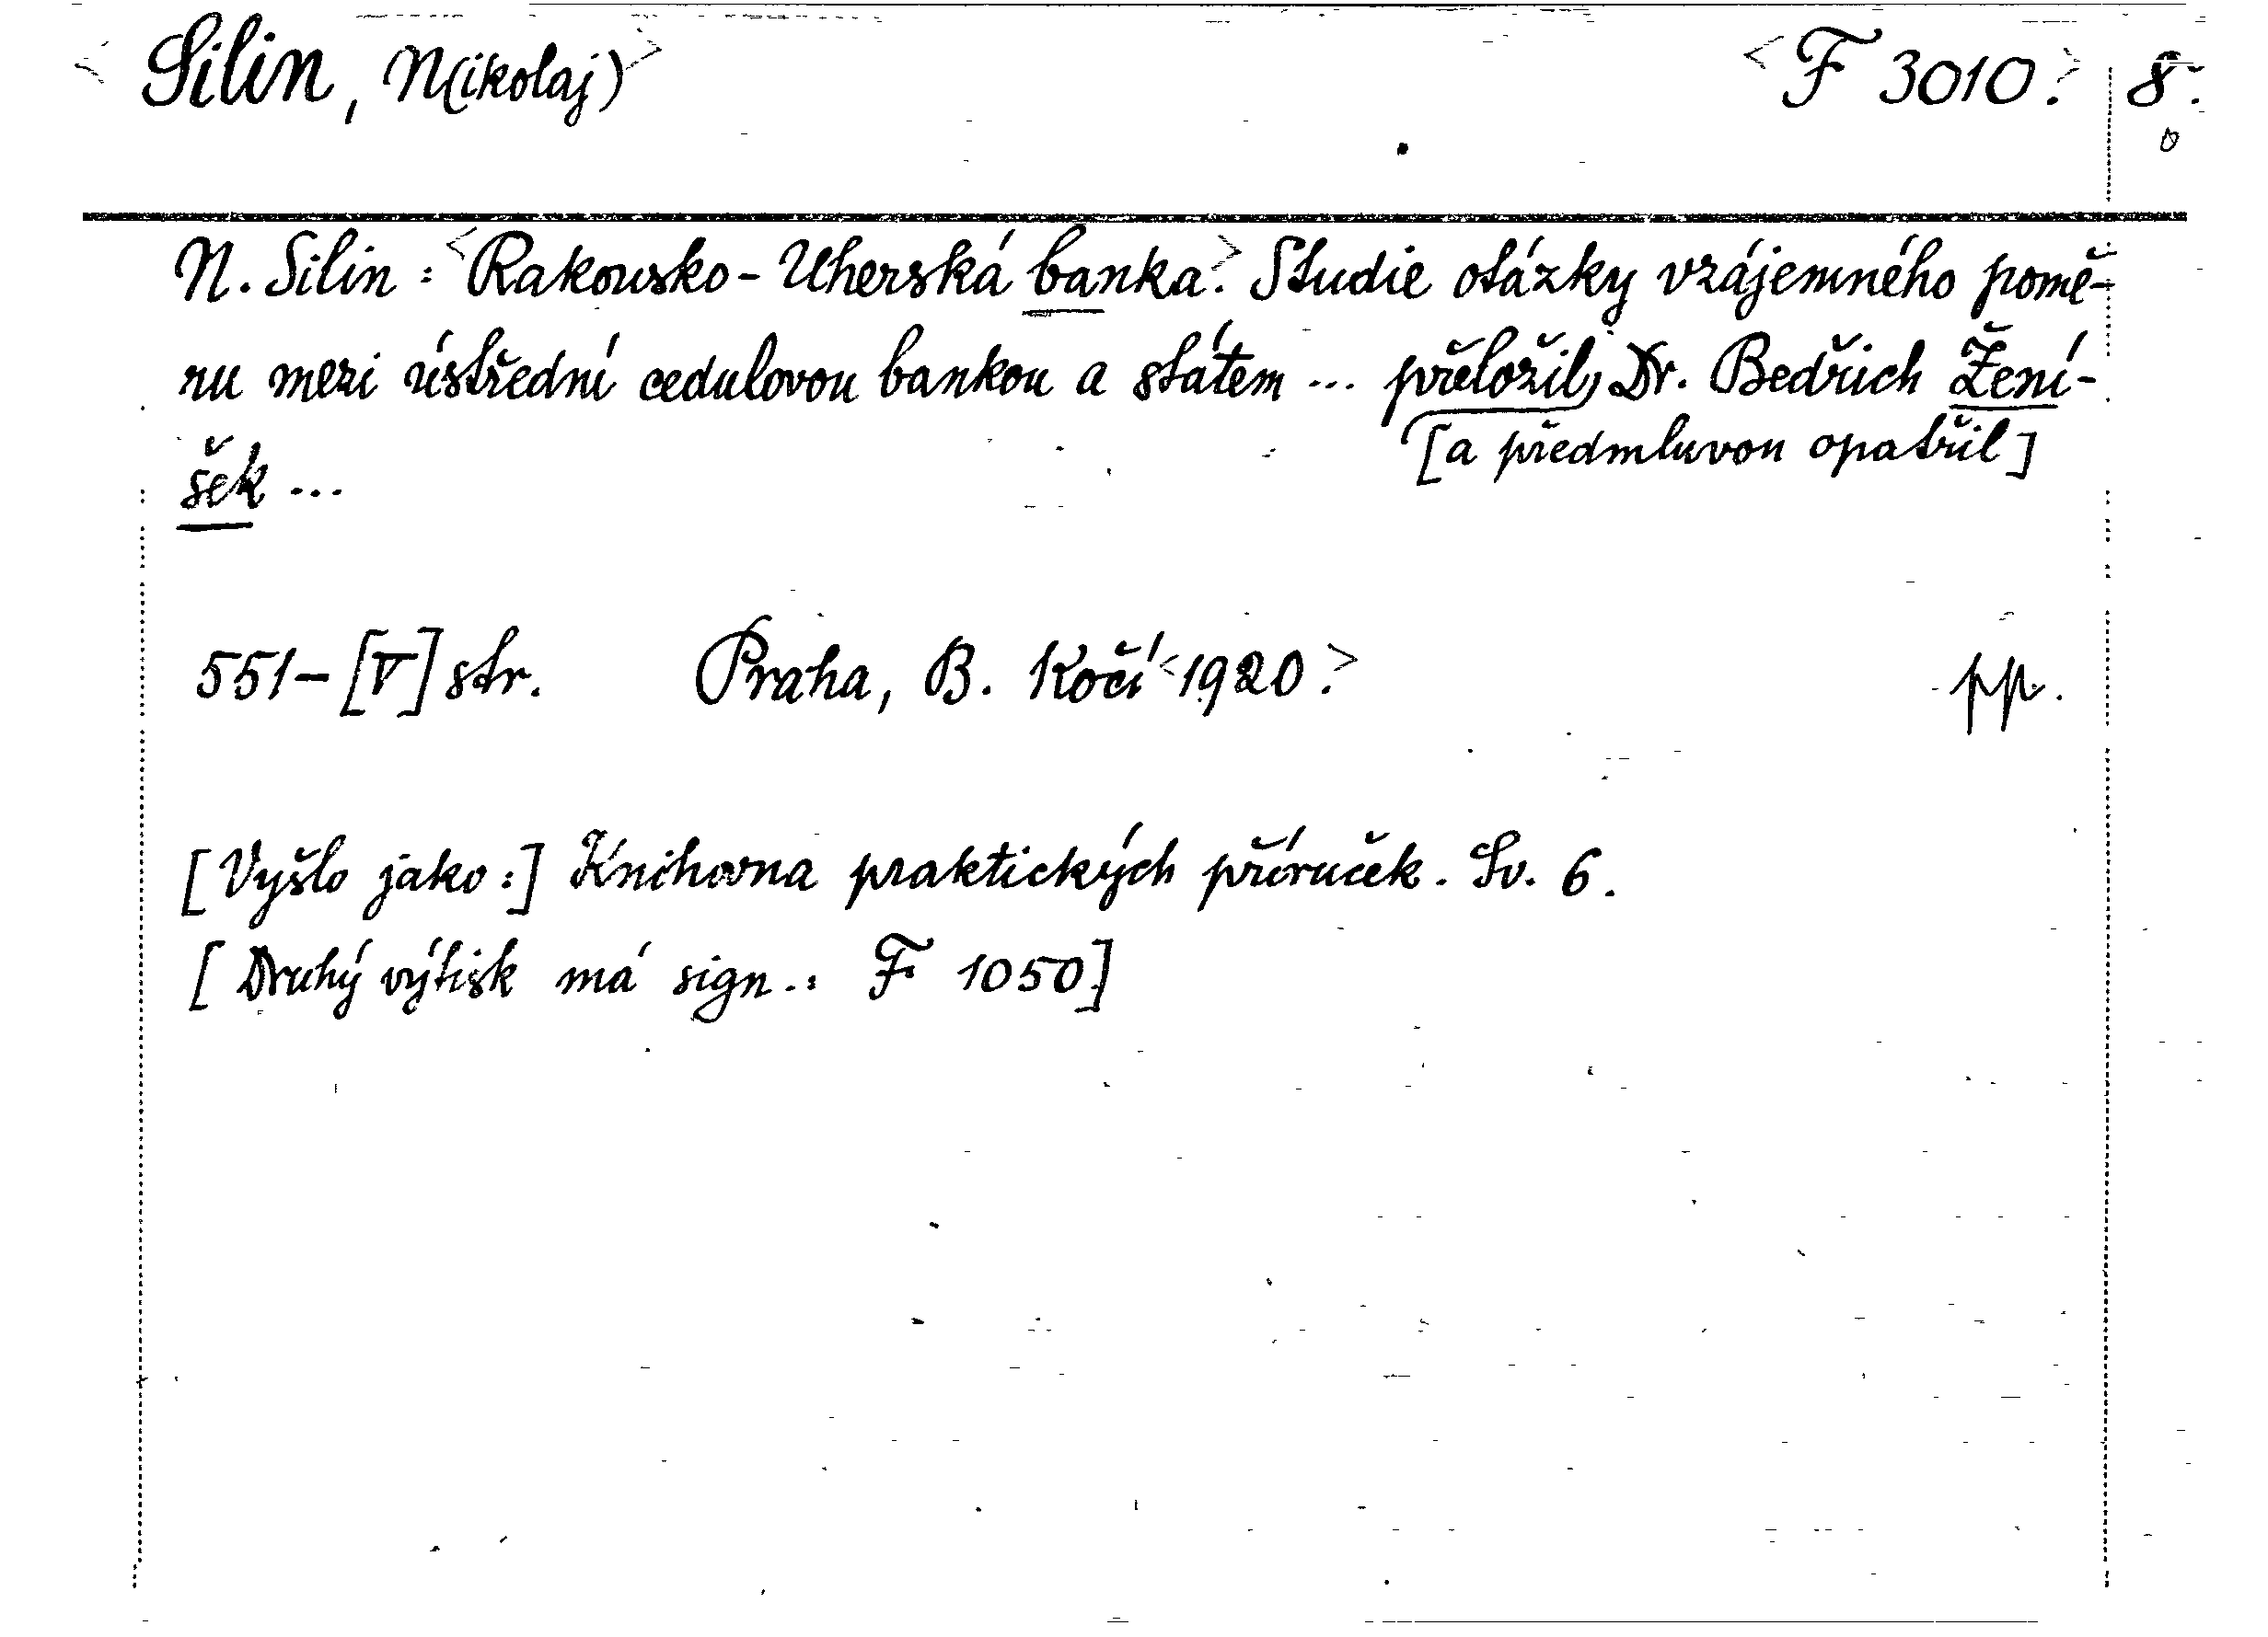 <Silin, N(ikolaj)> <F 3010.> 8°.
N. Silin: <Rakousko-Uherská banka.> Studie otázky vzájemného pomě-
ru mezi ústřední cedulovou bankou a státem ... přeložil Dr. Bedřich Žení-
[a předmluvou opatřil]
šek ...
551-[V] str. Praha, B. Kočí <1920.> pp.
[Vyšlo jako:] Knihovna praktických příruček. Sv. 6.
[Druhý výtisk má sign.: F 1050]